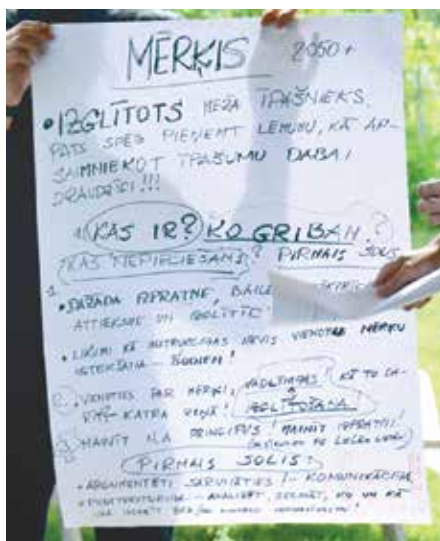 MĒRĶIS 2050+
• IZGLĪTOTS MEŽA ĪPAŠNIEKS,
PATS SPĒJ PIEŅEMT LĒMUMU, KĀ AP-
SAIMNIEKOT ĪPAŠUMU DABAI
DRAUDZĪGI!!!
KAS IR? KO GRIBAM?
KAS NEPIECIEŠAMS? PIRMAIS SOLIS
1. • DAŽĀDA IZPRATNE, BAILE
ATTIEKSME UN IZGLĪTĪB
• LIKUMI KĀ INSTRUKCIJAS NEVIS VIENOTU MĒRĶU
ISTENOŠANA - ŠODIEN!
2. VIENOTIES PAR MĒRĶI, VADLĪNIJAS! KĀ TO DA-
RĪT KATRĀ ZIŅĀ! IZGLĪTOŠANA!
3. MAINĪT PRINCIPUS! MAINĪT IZPRATNI!
PIRMAIS SOLIS?
• ARGUMENTĒTI SARUNĀTIES! - KOMUNIKĀCIJA
- ANALIZĒT, UN KĀ